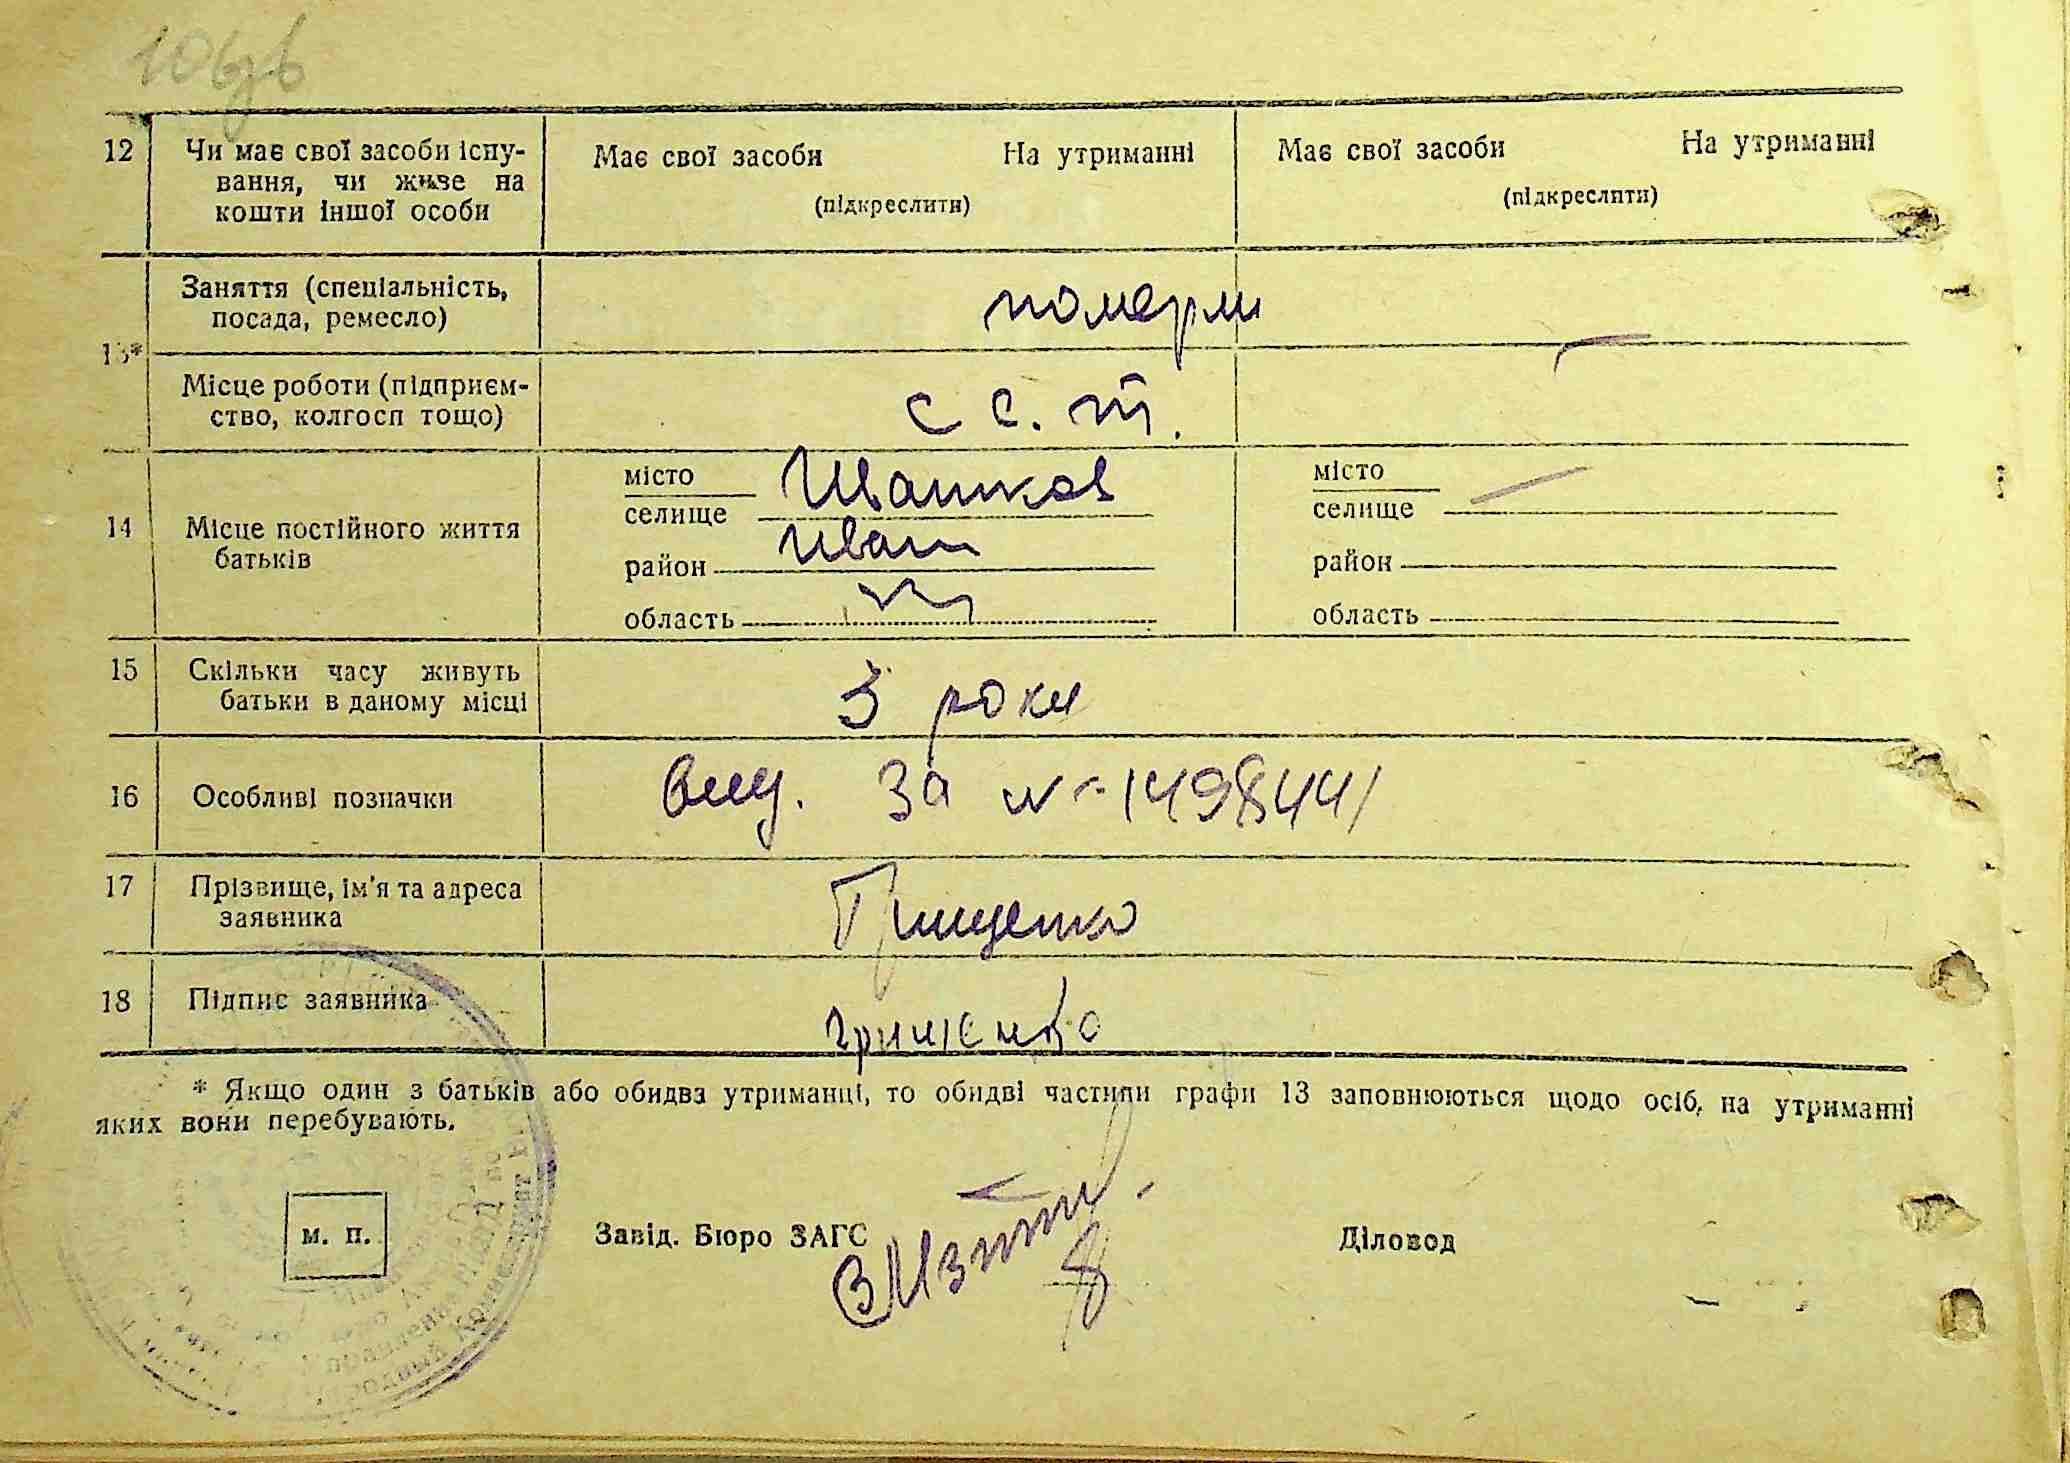 106зв
12 Чи має свої засоби існу-
вання, чи живе на
кошти іншої особи
Має свої засоби На утриманні
(підкреслити)
Має свої засоби На утриманні
(підкреслити)
13*
Заняття (спеціальність,
посада, ремесло)
померли
Місце роботи (підприєм-
ство, колгосп тощо)
14 Місце постійного життя
батьків
місто
селище Ивашков
район Иваш
область
місто
селище
район
область
15 Скільки часу живуть
батьки в даному місці
3 роки
16 Особливі позначки
вид. За № 149844
17 Прізвище, ім'я та адреса
заявника
Грищенко
18 Підпис заявника
* Якщо один з батьків або обидва утриманці, то обидві частини графи 13 заповнюються щодо осіб, на утриманні
яких вони перебувають.
м. п.
Завід. Бюро ЗАГС
Діловод